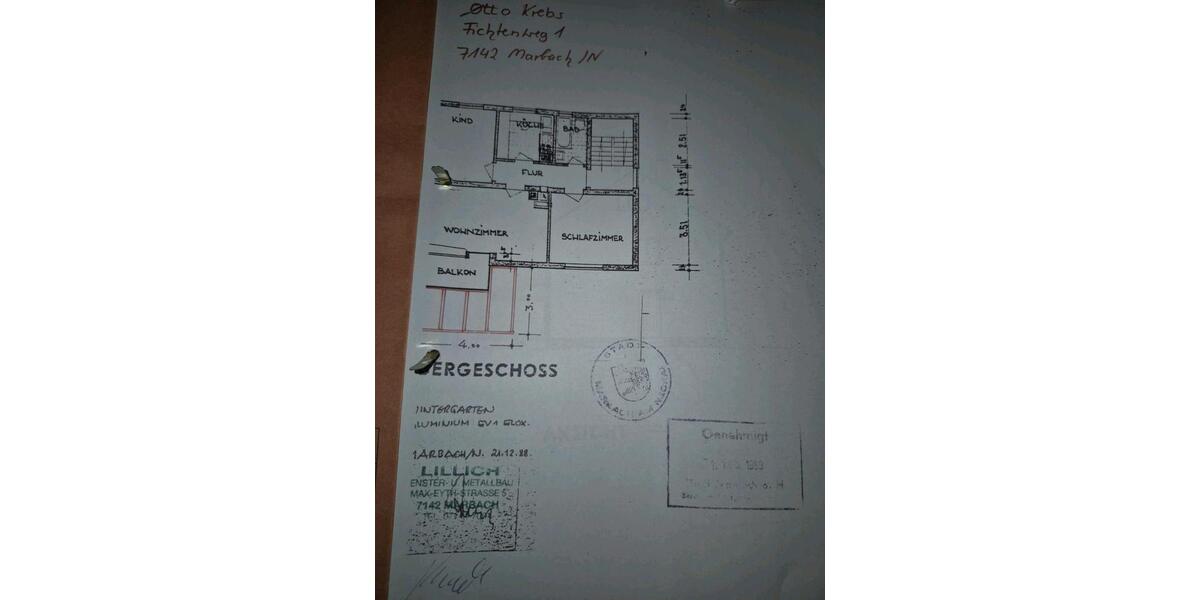 Otto Krebs
Fichtenweg 1
7142 Marbach/N
KIND
KÜCHE
BAD
FLUR
WOHNZIMMER
SCHLAFZIMMER
BALKON
24
2.51
11⁵
1.13⁵
24
3.51
24
3.00
4.00
ERGESCHOSS
INTERGARTEN
LUMINIUM EV1 ELOX.
ARBACH/N. 21.12.88.
LILLICH
ENSTER- U. METALLBAU
MAX-EYTH-STRASSE 5
7142 MARBACH
TEL.
STADT
MARBACH AM NECKAR
Genehmigt